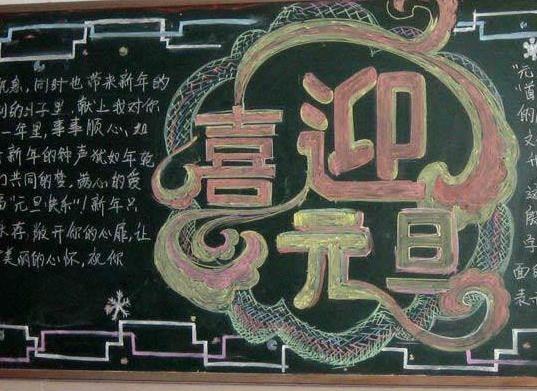 意,同时也带来新年的
的日子里,献上我对你
一年里,事事顺心,如
新年的钟声犹如年轮
们共同的梦,满心的爱
"元旦快乐"!新年只
敞开你的心扉,让
美丽的心怀,祝你
喜迎
元旦
"元
的
文
这
字
面的
表